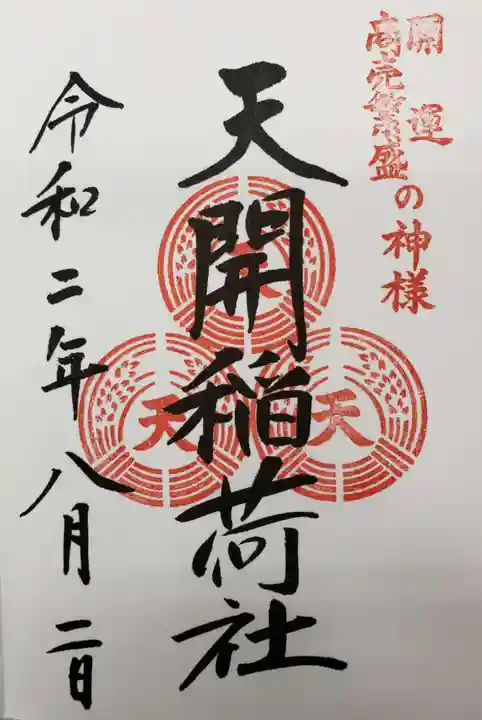 開運
商売繁盛の神様
天開稲荷社
天
天
天
令和二年八月二日